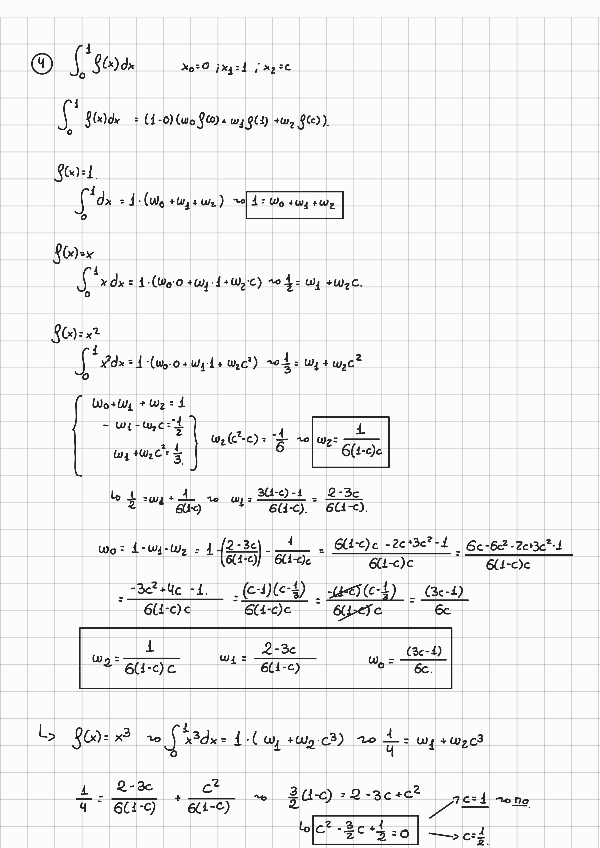 4 ∫₀¹ f(x)dx x₀=0 ; x₁=1 ; x₂=c
∫₀¹ f(x)dx = (1-0)(ω₀ f(0) + ω₁ f(1) + ω₂ f(c)).
f(x)=1.
∫₀¹ dx = 1·(ω₀ + ω₁ + ω₂) ⤳ 1 = ω₀ + ω₁ + ω₂
f(x)=x
∫₀¹ x dx = 1·(ω₀·0 + ω₁·1 + ω₂·c) ⤳ 1/2 = ω₁ + ω₂c.
f(x)=x²
∫₀¹ x²dx = 1·(ω₀·0 + ω₁·1 + ω₂c²) ⤳ 1/3 = ω₁ + ω₂c²
ω₀+ω₁ + ω₂ = 1
- ω₁ - ω₂c = -1/2
ω₁ + ω₂c² = 1/3. } ω₂(c²-c) = -1/6 ⤳ ω₂ = 1/(6(1-c)c)
↳ 1/2 = ω₁ + 1/(6(1-c)) ⤳ ω₁ = (3(1-c)-1)/(6(1-c)). = (2-3c)/(6(1-c)).
ω₀ = 1-ω₁-ω₂ = 1-((2-3c)/(6(1-c))) - 1/(6(1-c)c) = (6(1-c)c - 2c+3c²-1)/(6(1-c)c) = (6c-6c²-2c+3c²-1)/(6(1-c)c)
= (-3c²+4c -1.)/(6(1-c)c) = ((c-1)(c-1/3))/(6(1-c)c) = (-(1-c)(c-1/3))/(6(1-c)c) = (3c-1)/(6c)
ω₂ = 1/(6(1-c)c) ω₁ = (2-3c)/(6(1-c)) ω₀ = (3c-1)/(6c.)
↳ f(x) = x³ ⤳ ∫₀¹ x³dx = 1·( ω₁ + ω₂·c³) ⤳ 1/4 = ω₁ + ω₂c³
1/4 = (2-3c)/(6(1-c)) + c²/(6(1-c)) ⤳ 3/2(1-c) = 2-3c+c²
↳ c² - 3/2c + 1/2 = 0 → c=1 ⤳ no.
→ c=1/2.